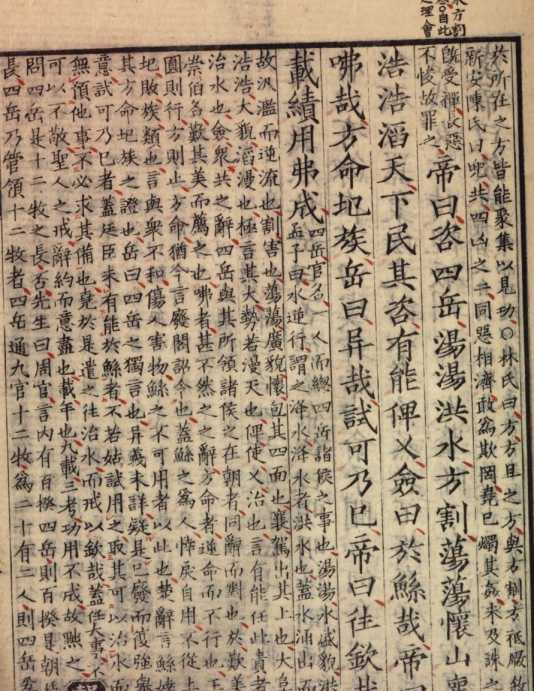 水方割
〇自此
之理會
於所在之方皆能聚集以見功○林氏曰方方且之方與方割方祗厥敘
新安陳氏曰兜共四凶之二同惡相濟敢爲欺罔堯已燭其姦未及誅之
旣受禪以惡
不悛故罪之
帝曰咨四岳湯湯洪水方割蕩蕩懷山襄
浩浩滔天下民其咨有能俾乂僉曰於鯀哉帝曰
咈哉方命圮族岳曰异哉試可乃已帝曰往欽哉
載績用弗成
四岳官名一人而總四岳諸侯之事也湯湯水盛貌洪
孟子曰水逆行謂之洚水洚水者洪水也蓋水涌出而
故汎濫而逆流也割害也蕩蕩廣貌懷包其四面也襄駕出其上也大阜
浩浩大貌滔漫也極言其大勢若漫天也俾使乂治也言有能任此責者
治水也僉衆共之辭四岳與其所領諸侯之在朝者同辭而對也於歎美
崇伯名歎其美而薦之也咈者甚不然之之辭方命者逆命而不行也王
圓則行方則止方命猶今言廢閣詔令也蓋鯀之爲人悻戾自用不從上
圮敗族類也言與衆不和傷人害物鯀之不可用者以此也楚辭言鯀婞
其方命圮族之證也岳曰四岳之獨言也异義未詳疑是已廢而復強舉
意試可乃已者蓋廷臣未有能於鯀者不若姑試用之取其可以治水而
無預他事不必求其備也堯於是遣之往治水而戒以欽哉蓋任大事不
可以不敬聖人之戒辭約而意盡也載年也九載三考功用不成故黜之
問四岳是十二牧之長否先生曰周官言內有百揆四岳則百揆是朝廷
長四岳乃管領十二牧者四岳通九官十二牧爲二十有二人則四岳爲